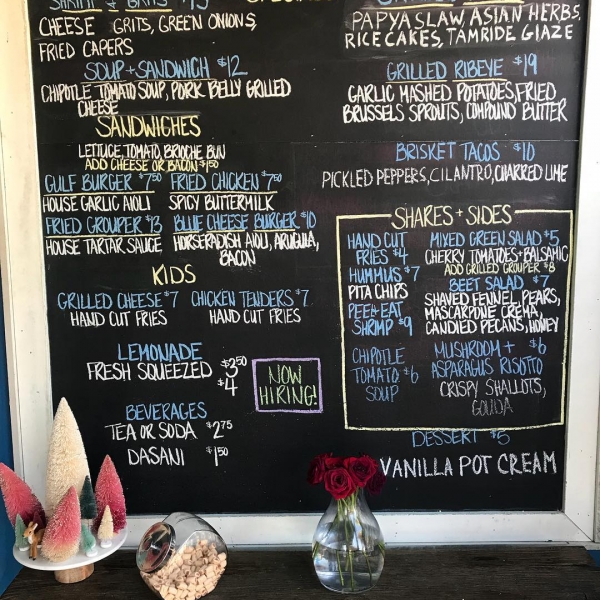 SHRIMP & GRITS $15
CHEESE GRITS, GREEN ONIONS,
FRIED CAPERS
SOUP + SANDWICH $12
CHIPOTLE TOMATO SOUP, PORK BELLY GRILLED
CHEESE
SANDWICHES
LETTUCE, TOMATO, BRIOCHE BUN
ADD CHEESE OR BACON $1.50
GULF BURGER $7.50 FRIED CHICKEN $7.50
HOUSE GARLIC AIOLI SPICY BUTTERMILK
FRIED GROUPER $13 BLUE CHEESE BURGER $10
HOUSE TARTAR SAUCE HORSERADISH AIOLI, ARUGULA,
BACON
KIDS
GRILLED CHEESE $7 CHICKEN TENDERS $7
HAND CUT FRIES HAND CUT FRIES
LEMONADE
FRESH SQUEEZED $3.50
$4
NOW
HIRING!
BEVERAGES
TEA OR SODA $2.75
DASANI $1.50
PAPYA SLAW, ASIAN HERBS,
RICE CAKES, TAMRIDE GLAZE
GRILLED RIBEYE $19
GARLIC MASHED POTATOES, FRIED
BRUSSELS SPROUTS, COMPOUND BUTTER
BRISKET TACOS $10
PICKLED PEPPERS, CILANTRO, CHARRED LIME
SHARES + SIDES
HAND CUT
FRIES $4
HUMMUS $7
PITA CHIPS
PEEL + EAT
SHRIMP $9
CHIPOTLE
TOMATO $6
SOUP
MIXED GREEN SALAD $5
CHERRY TOMATOES + BALSAMIC
ADD GRILLED GROUPER $8
BEET SALAD $7
SHAVED FENNEL, PEARS,
MASCARPONE CREMA,
CANDIED PECANS, HONEY
MUSHROOM + $6
ASPARAGUS RISOTTO
CRISPY SHALLOTS,
GOUDA
DESSERT $5
VANILLA POT CREAM